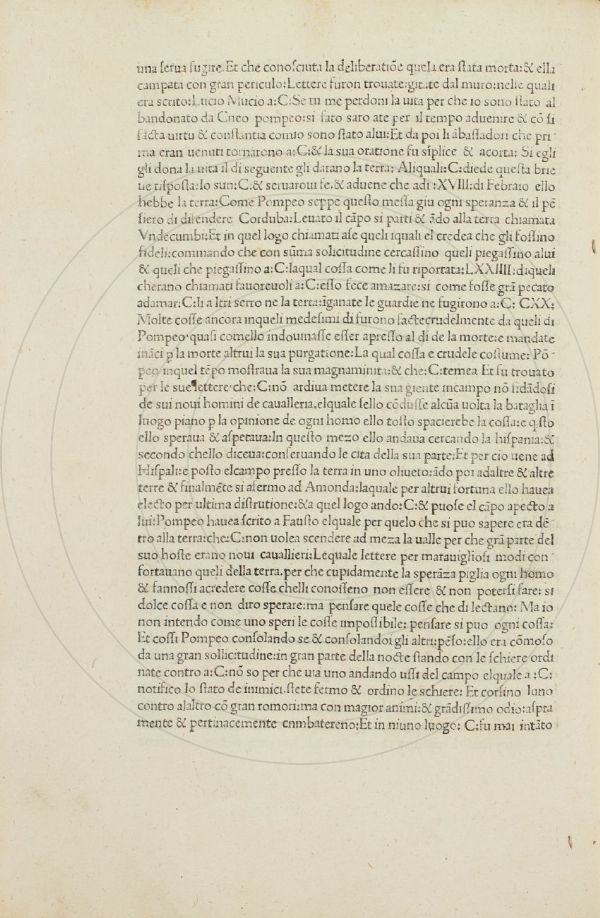 una serua fugire. Et che conosciuta la deliberatiõe quela era stata morta: & ella
campata con gran periculo: Lettere furon trouate: gitate dal muro: nelle quali
era scrito: Lucio Mucio a: C: Se tu me perdoni la uita per che io sono stato al
bandonato da Cneo pompeo: si fato saro ate per il tempo aduenire & cõ si
facta uirtu & constantia como sono stato alui: Et da poi li ãbassadori che pri
ma eran uenuti tornarono a: C: & la sua oratione fu sĩplice & acorta: Si egli
gli dona la uita il di seguente gli darano la terra: Aliquali: C: diede questa brie
ue risposta: Io sun: C: & seruaroui fe. & aduene che adi: XVIII: di Febraio ello
hebbe la terra: Come Pompeo seppe questo messa giu ogni speranza & il pẽ
siero di difendere Corduba: Leuato il cãpo si parti & ãdo alla terra chiamata
Vndecumbi: Et in quel logo chiamati ase queli iquali el credea che gli fossino
fideli: commando che con sũma solicitudine cercassino queli piegassino alui
& queli che piegassino a: C: laqual cossa come li fu riportata: LXXIIII: di queli
cherano chiamati fauoreuoli a: C: esso fece amazare: si come fosse grã pecato
adamar: C: li altri serro ne la terra: ĩganate le guardie ne fugirono a: C: CXX:
Molte cosse ancora inqueli medesimi di furono factecrudelmente da queli di
Pompeo. quasi comello indouinasse esser apresso al di de la morte: e mandate
inãci p la morte altrui la sua purgatione: La qual cossa e crudele costume: Põ-
peo inquel tẽpo mostraua la sua magnaminita: & che: C: temea Et fu trouato
per le sue lettere. che: C: nõ ardiua metere la sua giente incampo nõ fidãdosi
de sui noui homini de caualleria. elquale sello cõdusse alcũa uolta la bataglia ĩ
luogo piano p la opinione de ogni homo ello tosto spacierebe la cossa: e q̃sto
ello speraua & aspetaua: In questo mezo ello andaua cercando la hispania: &
secondo chello diceua: conseruando le cita della sua parte: Et per cio uene ad
Hispali: e posto elcampo presso la terra in uno oliueto: ãdo poi adaltre & altre
terre & finalmẽte si afermo ad Amonda: laquale per altrui fortuna ello hauea
electo per ultima distrutione: & a quel logo ando: C: & puose el cãpo apecto a
lui: Pompeo hauea scrito a Fausto elquale per quelo che si puo sapere era dẽ
tro alla terra: che: C: non uolea scendere ad meza la ualle per che grã parte del
suo hoste erano noui cauallieri: Lequale lettere per marauigliosi modi con
fortauano queli della terra. per che cupidamente la sperãza piglia ogni homo
& fannossi acredere cosse chelli conosseno non essere & non potersi fare: si
dolce cossa e non diro sperare: ma pensare quele cosse che di lectano: Ma io
non intendo come uno speri le cosse impossibile: pensare si puo ogni cossa:
Et cossi Pompeo consolando se & consolandoi gli altri: pẽso: ello era cõmoso
da una gran sollicitudine: in gran parte della nocte stando con le schiere ordi
nate contro a: C: nõ so per che uia uno andando ussi del campo elquale a: C:
notifico lo stato de inimici. stete fermo & ordino le schiere: Et corsino luno
contro alaltro cõ gran romori: ma con magior animi: & grãdissimo odio: aspra
mente & pertinacemente cnmbatereno: Et in niuno luogo: C: fu mai intãto